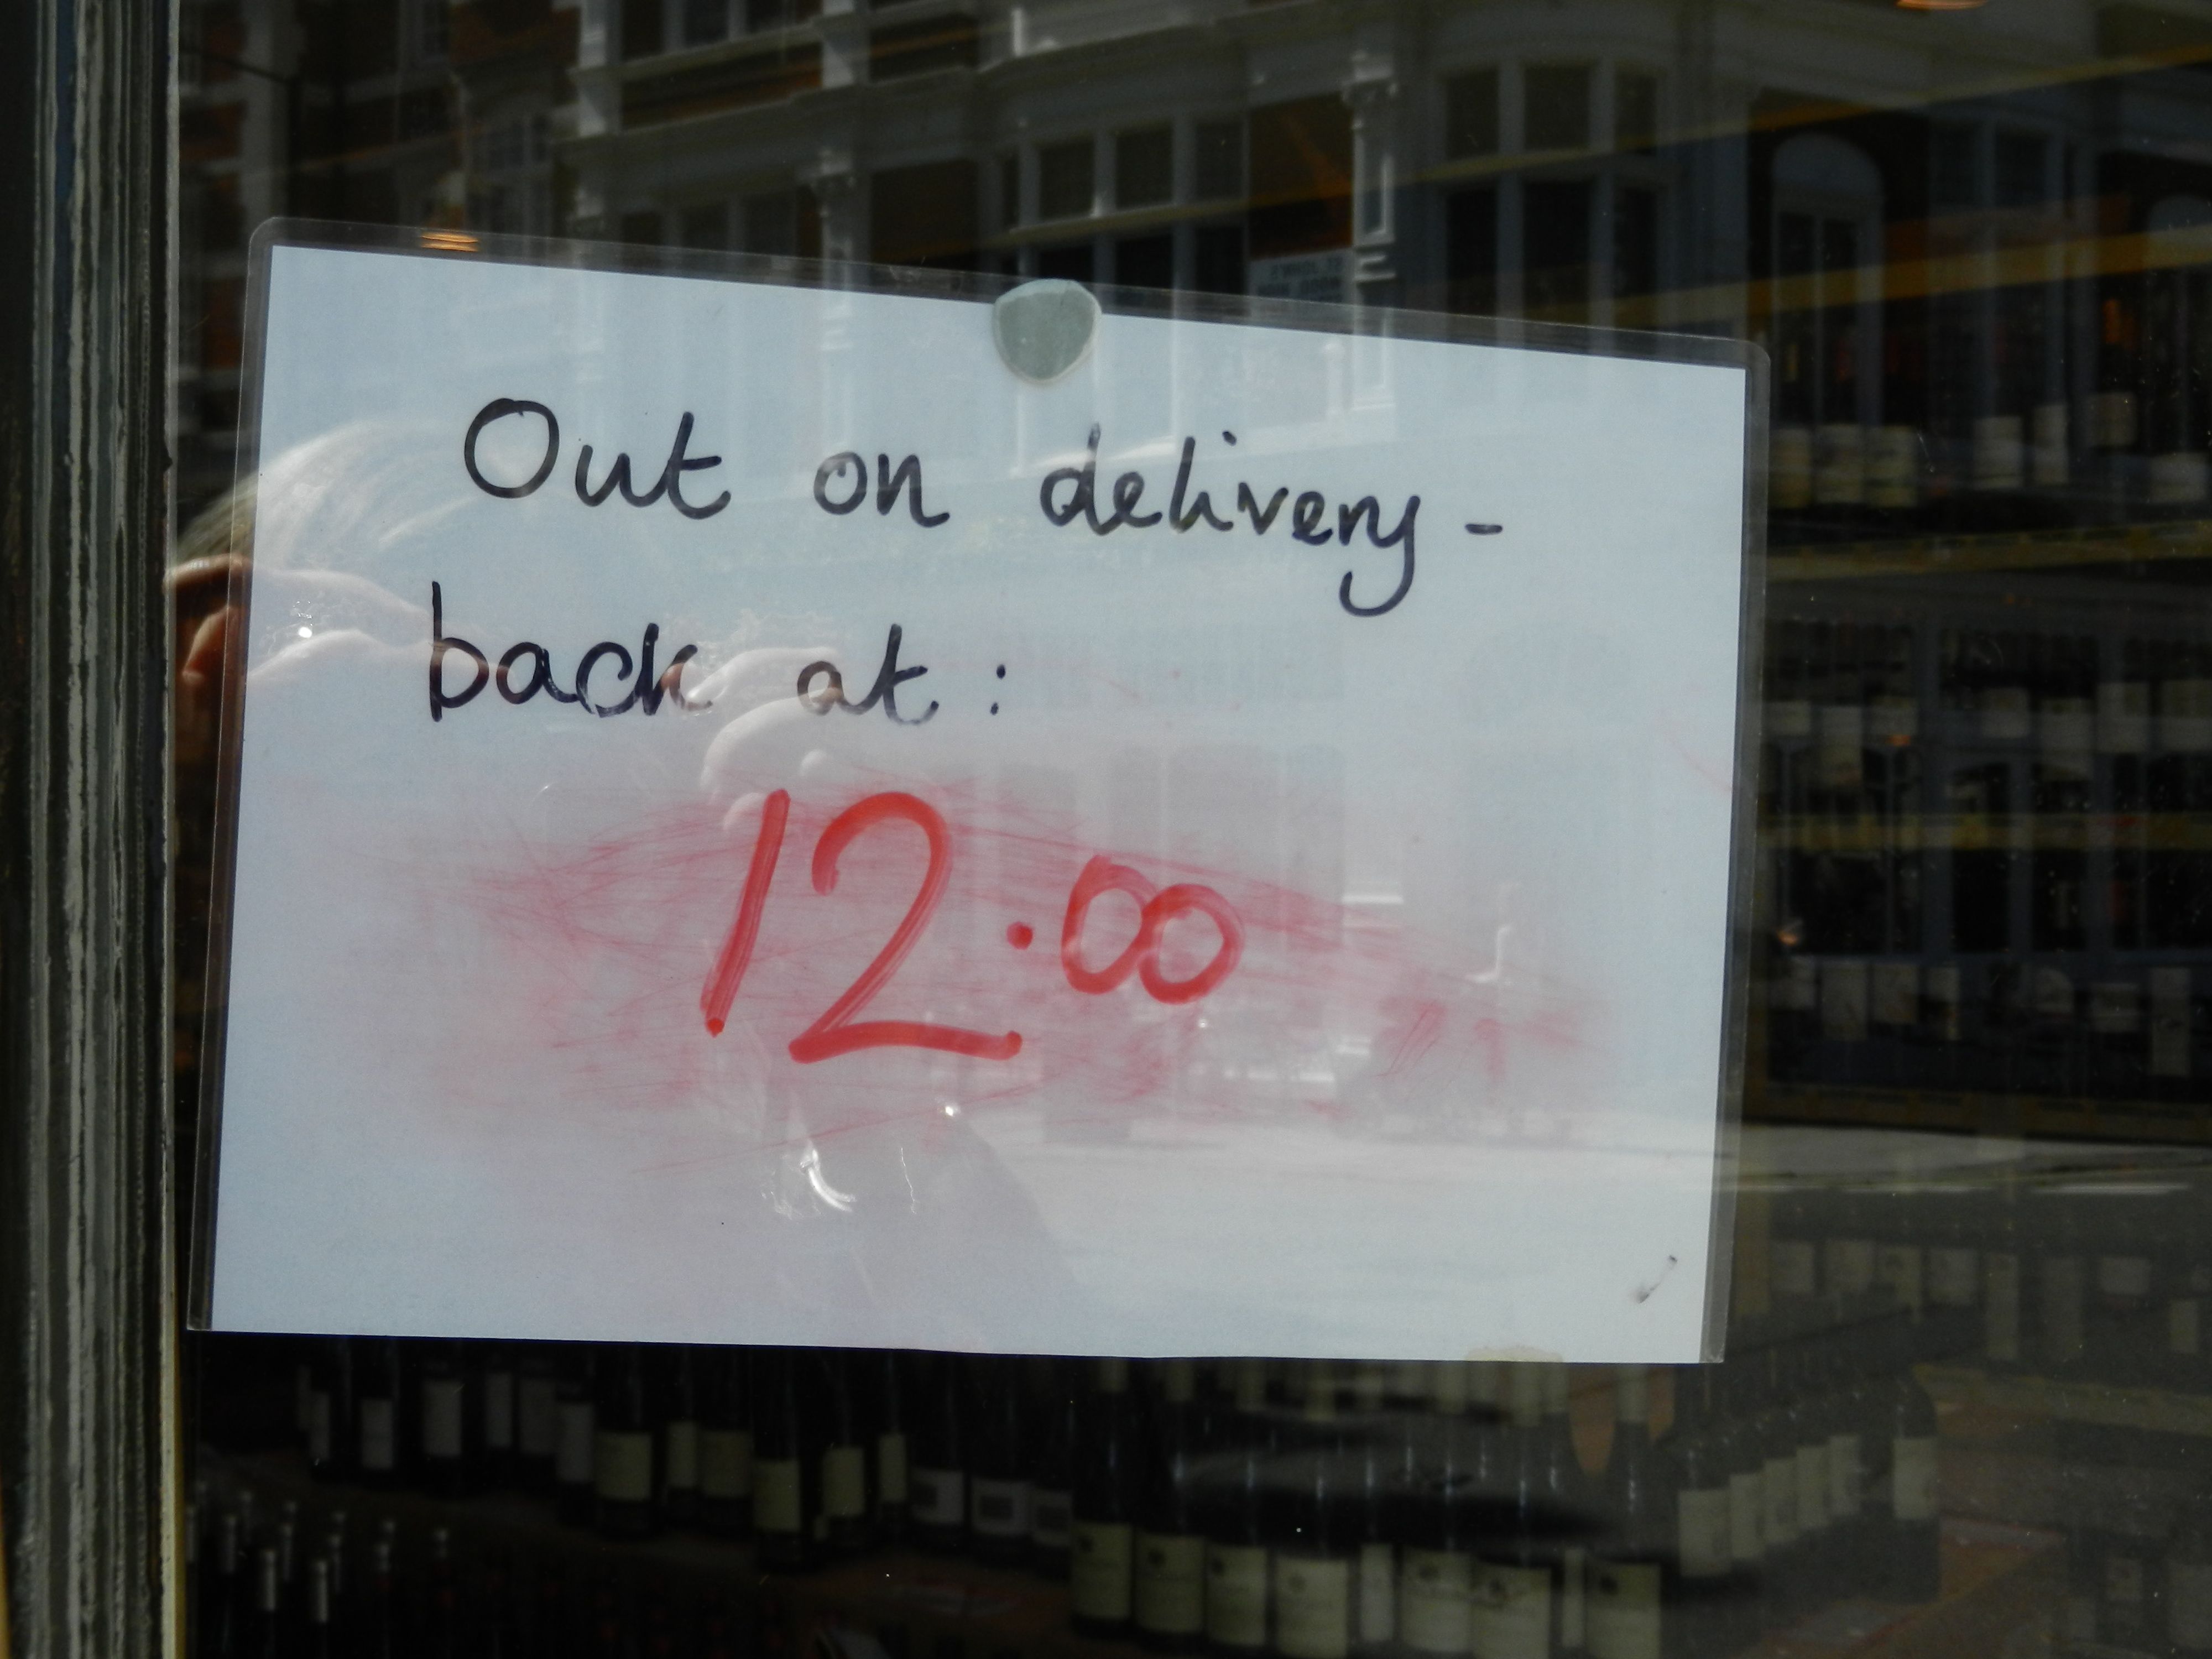 Out on delivery -
back at :
12.00